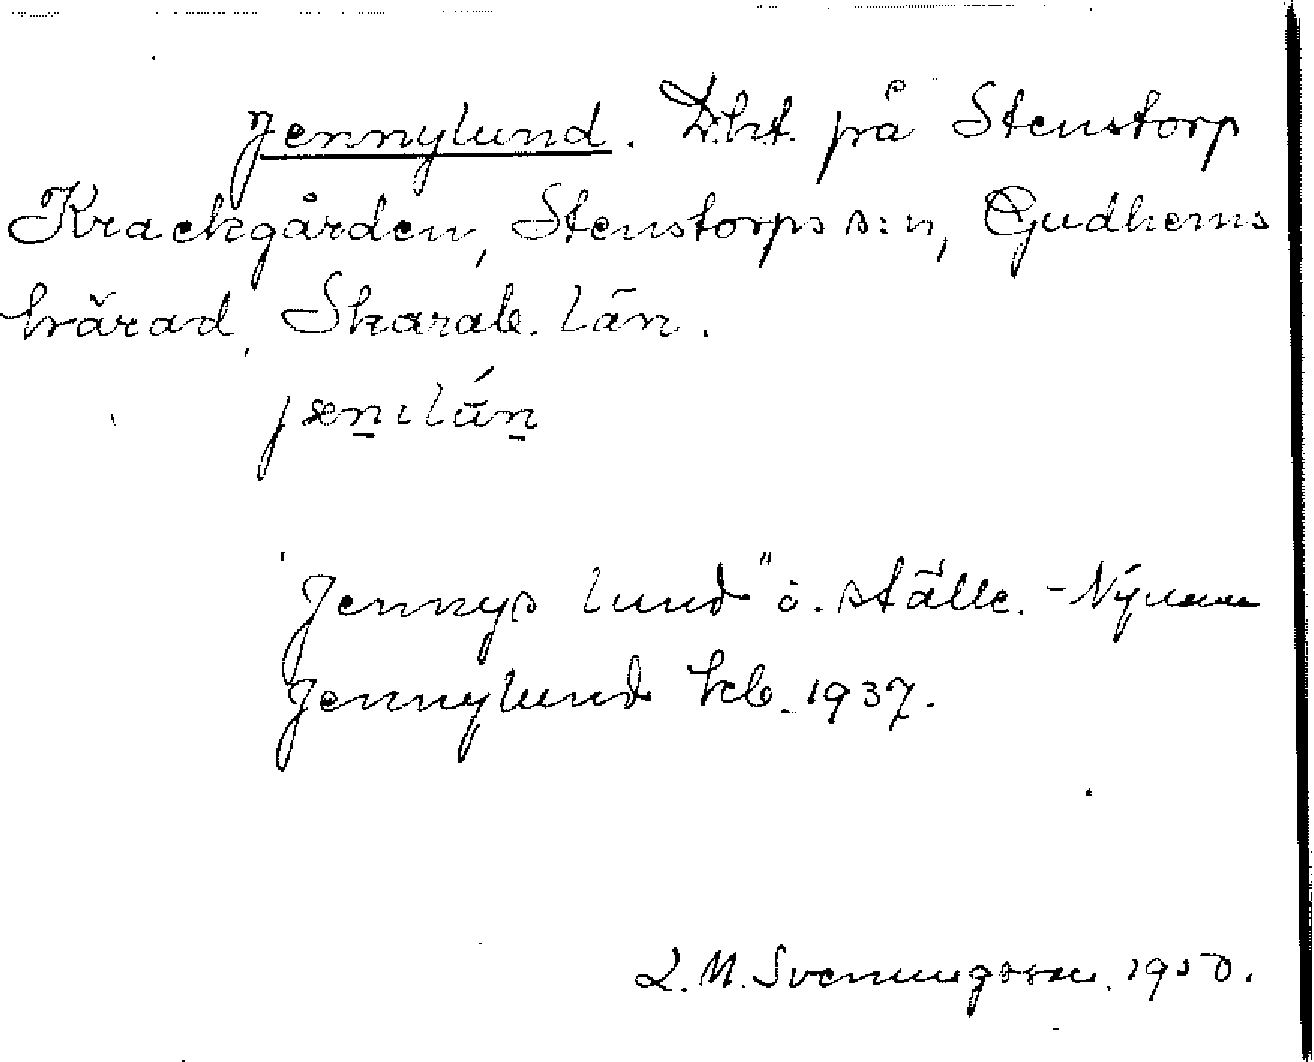 Jennylund. D:ht. på Stenstorp
Krackgården, Stenstorps s:n, Gudhems
härad, Skarab. län.
"Jennys lund" ö. ställe. -
Jennylund kb. 1937.
L. M. Svenungsson. 1950.